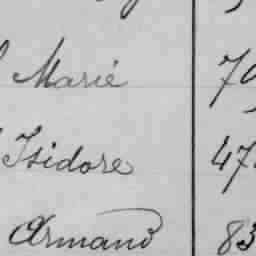 Marie 79
Isidore 47
Armand 83